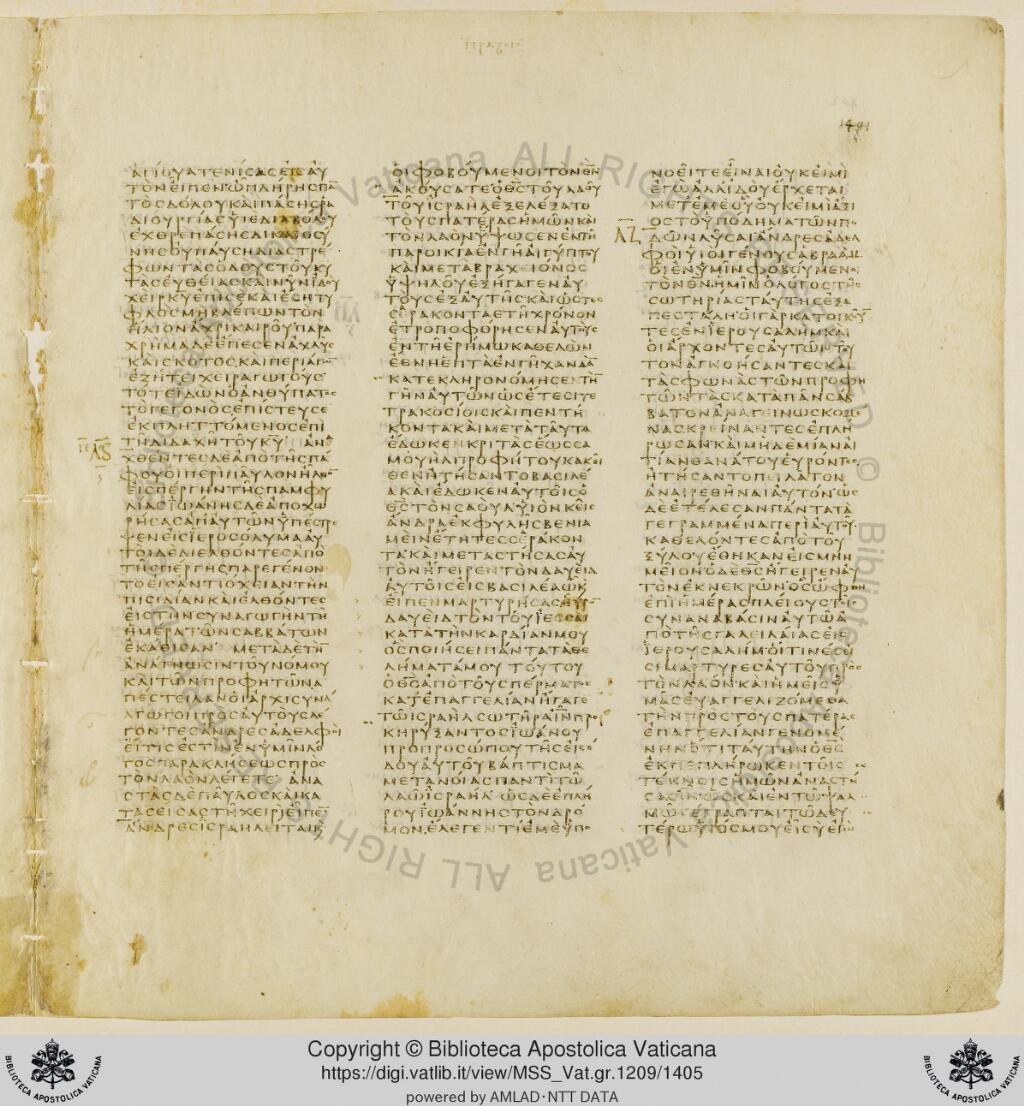 ΑΓΙΟΥΑΤΕΝΙCΑCΕΙCΑΥ
ΤΟΝΕΙΠΕΝΩΠΛΗΡΗCΠΑ
ΤΟCΔΟΛΟΥΚΑΙΠΑCΗCΡΑ
ΔΙΟΥΡΓΙΑCΥΙΕΔΙΑΒΟΛΟΥ
ΕΧΘΡΕΠΑCΗCΔΙΚΑΙΟCΥ
ΝΗCΟΥΠΑΥCΗΔΙΑCΤΡΕ
ΦΩΝΤΑCΟΔΟΥCΤΟΥΚΥ
ΤΑCΕΥΘΕΙΑCΚΑΙΝΥΝΙΔΟΥ
ΧΕΙΡΚΥΕΠΙCΕΚΑΙΕCΗΤΥ
ΦΛΟCΜΗΒΛΕΠΩΝΤΟΝ
ΗΛΙΟΝΑΧΡΙΚΑΙΡΟΥΠΑΡΑ
ΧΡΗΜΑΔΕΕΠΕCΕΝΑΧΛΥC
ΚΑΙCΚΟΤΟCΚΑΙΠΕΡΙΑΓΩ
ΕΖΗΤΕΙΧΕΙΡΑΓΩΓΟΥC
ΤΟΤΕΙΔΩΝΟΑΝΘΥΠΑΤΟC
ΤΟΓΕΓΟΝΟCΕΠΙCΤΕΥCΕ
ΕΚΠΛΗΤΤΟΜΕΝΟCΕΠΙ
ΤΗΔΙΔΑΧΗΤΟΥΚΥ ΑΝΑ
ΛS
ΧΘΕΝΤΕCΔΕΑΠΟΤΗCΠΑ
ΦΟΥΟΙΠΕΡΙΠΑΥΛΟΝΗΛΘΟ
ΕΙCΠΕΡΓΗΝΤΗCΠΑΜΦΥ
ΛΙΑCΙΩΑΝΗCΔΕΑΠΟΧΩ
ΡΗCΑCΑΠΑΥΤΩΝΥΠΕCΤΡΕ
ΨΕΝΕΙCΙΕΡΟCΟΛΥΜΑΑΥ
ΤΟΙΔΕΔΙΕΛΘΟΝΤΕCΑΠΟ
ΤΗCΠΕΡΓΗCΠΑΡΕΓΕΝΟΝ
ΤΟΕΙCΑΝΤΙΟΧΕΙΑΝΤΗΝ
ΠΙCΙΔΙΑΝΚΑΙΕΛΘΟΝΤΕC
ΕΙCΤΗΝCΥΝΑΓΩΓΗΝΤΗ
ΗΜΕΡΑΤΩΝCΑΒΒΑΤΩΝ
ΕΚΑΘΙCΑΝ ΜΕΤΑΔΕΤΗ
ΑΝΑΓΝΩCΙΝΤΟΥΝΟΜΟΥ
ΚΑΙΤΩΝΠΡΟΦΗΤΩΝΑ
ΠΕCΤΕΙΛΑΝΟΙΑΡΧΙCΥΝΑ
ΓΩΓΟΙΠΡΟCΑΥΤΟΥCΛΕ
ΓΟΝΤΕCΑΝΔΡΕCΑΔΕΛΦΟΙ
ΕΙΤΙCΕCΤΙΝΕΝΥΜΙΝΛΟ
ΓΟCΠΑΡΑΚΛΗCΕΩCΠΡΟC
ΤΟΝΛΑΟΝΛΕΓΕΤΕ ΑΝΑ
CΤΑCΔΕΠΑΥΛΟCΚΑΙΚΑ
ΤΑCΕΙCΑCΤΗΧΕΙΡΙΕΙΠΕ
ΑΝΔΡΕCΙCΡΑΗΛΕΙΤΑΙΚ
ΟΙΦΟΒΟΥΜΕΝΟΙΤΟΝΘΝ
ΑΚΟΥCΑΤΕΟΘCΤΟΥΛΑΟΥ
ΤΟΥΙCΡΑΗΛΕΞΕΛΕΞΑΤΟ
ΤΟΥCΠΑΤΕΡΑCΗΜΩΝΚΑΙ
ΤΟΝΛΑΟΝΥΨΩCΕΝΕΝΤΗ
ΠΑΡΟΙΚΙΑΕΝΓΗΑΙΓΥΠΤΟΥ
ΚΑΙΜΕΤΑΒΡΑΧΕΙΟΝΟC
ΥΨΗΛΟΥΕΞΗΓΑΓΕΝΑΥ
ΤΟΥCΕΞΑΥΤΗCΚΑΙΩCΤΕC
CΕΡΑΚΟΝΤΑΕΤΗΧΡΟΝΟΝ
ΕΤΡΟΠΟΦΟΡΗCΕΝΑΥΤΟΥC
ΕΝΤΗΕΡΗΜΩΚΑΘΕΛΩΝ
ΕΘΝΗΕΠΤΑΕΝΓΗΧΑΝΑΑ
ΚΑΤΕΚΛΗΡΟΝΟΜΗCΕΝΤΗ
ΓΗΝΑΥΤΩΝΩCΕΤΕCΙΤΕ
ΤΡΑΚΟCΙΟΙCΚΑΙΠΕΝΤΗ
ΚΟΝΤΑΚΑΙΜΕΤΑΤΑΥΤΑ
ΕΔΩΚΕΝΚΡΙΤΑCΕΩCCΑ
ΜΟΥΗΛΠΡΟΦΗΤΟΥΚΑΚΕΙ
ΘΕΝΗΤΗCΑΝΤΟΒΑCΙΛΕ
ΑΚΑΙΕΔΩΚΕΝΑΥΤΟΙCΟ
ΘCΤΟΝCΑΟΥΛΥΙΟΝΚΕΙC
ΑΝΔΡΑΕΚΦΥΛΗCΒΕΝΙΑ
ΜΕΙΝΕΤΗΤΕCCΕΡΑΚΟΝ
ΤΑΚΑΙΜΕΤΑCΤΗCΑCΑΥ
ΤΟΝΗΓΕΙΡΕΝΤΟΝΔΑΥΕΙΔ
ΑΥΤΟΙCΕΙCΒΑCΙΛΕΑΩΚ
ΕΙΠΕΝΜΑΡΤΥΡΗCΑCΕΥΡΟ
ΔΑΥΕΙΔΤΟΝΤΟΥΙΕCCΑΙ
ΚΑΤΑΤΗΝΚΑΡΔΙΑΝΜΟΥ
ΟCΠΟΙΗCΕΙΠΑΝΤΑΤΑΘΕ
ΛΗΜΑΤΑΜΟΥ ΤΟΥΤΟΥ
ΟΘCΑΠΟΤΟΥCΠΕΡΜΑΤΟC
ΚΑΤΕΠΑΓΓΕΛΙΑΝΗΓΑΓΕ
ΤΩΙCΡΑΗΛCΩΤΗΡΑΙΝΠΡΟ
ΚΗΡΥΞΑΝΤΟCΙΩΑΝΟΥ
ΠΡΟΠΡΟCΩΠΟΥΤΗCΕΙCΟ
ΔΟΥΑΥΤΟΥΒΑΠΤΙCΜΑ
ΜΕΤΑΝΟΙΑCΠΑΝΤΙΤΩ
ΛΑΩΙCΡΑΗΛ ΩCΔΕΕΠΛΗ
ΡΟΥΙΩΑΝΝΗCΤΟΝΔΡΟ
ΜΟΝΕΛΕΓΕΝΤΙΕΜΕΥΠΟ
ΝΟΕΙΤΕΕΙΝΑΙΟΥΚΕΙΜΙ
ΕΓΩΑΛΛΙΔΟΥΕΡΧΕΤΑΙ
ΜΕΤΕΜΕΟΥΟΥΚΕΙΜΙΑΞΙ
ΟCΤΟΥΠΟΔΗΜΑΤΩΝΠΟ
ΛΖ
ΔΩΝΛΥCΑΙΑΝΔΡΕCΑΔΕΛ
ΦΟΙΥΙΟΙΓΕΝΟΥCΑΒΡΑΑΜ
ΟΙΕΝΥΜΙΝΦΟΒΟΥΜΕΝΟΙ
ΤΟΝΘΝΗΜΙΝΟΛΟΓΟCΤΗC
CΩΤΗΡΙΑCΤΑΥΤΗCΕΞΑ
ΠΕCΤΑΛΗΟΙΓΑΡΚΑΤΟΙΚΟΥ
ΤΕCΕΝΙΕΡΟΥCΑΛΗΜΚΑΙ
ΟΙΑΡΧΟΝΤΕCΑΥΤΩΝΤΟΥ
ΤΟΝΑΓΝΟΗCΑΝΤΕCΚΑΙ
ΤΑCΦΩΝΑCΤΩΝΠΡΟΦΗ
ΤΩΝΤΑCΚΑΤΑΠΑΝCΑΒ
ΒΑΤΟΝΑΝΑΓΕΙΝΩCΚΟΜΕ
ΝΑCΚΡΕΙΝΑΝΤΕCΕΠΛΗ
ΡΩCΑΝΚΑΙΜΗΔΕΜΙΑΝΑΙ
ΤΙΑΝΘΑΝΑΤΟΥΕΥΡΟΝΤΕC
ΗΤΗCΑΝΤΟΠΕΙΛΑΤΟΝ
ΑΝΑΙΡΕΘΗΝΑΙΑΥΤΟΝΩC
ΔΕΕΤΕΛΕCΑΝΠΑΝΤΑΤΑ
ΓΕΓΡΑΜΜΕΝΑΠΕΡΙΑΥΤΟΥ
ΚΑΘΕΛΟΝΤΕCΑΠΟΤΟΥ
ΞΥΛΟΥΕΘΗΚΑΝΕΙCΜΝΗ
ΜΕΙΟΝΟΔΕΘCΗΓΕΙΡΕΝΑΥ
ΤΟΝΕΚΝΕΚΡΩΝΟCΩΦΘΗ
ΕΠΙΗΜΕΡΑCΠΛΕΙΟΥCΤΟΙC
CΥΝΑΝΑΒΑCΙΝΑΥΤΩΑ
ΠΟΤΗCΓΑΛΕΙΛΑΙΑCΕΙC
ΙΕΡΟΥCΑΛΗΜΟΙΤΙΝΕCΕΙ
CΙΜΑΡΤΥΡΕCΑΥΤΟΥΠΡΟC
ΤΟΝΛΑΟΝΚΑΙΗΜΕΙCΥ
ΜΑCΕΥΑΓΓΕΛΙΖΟΜΕΘΑ
ΤΗΝΠΡΟCΤΟΥCΠΑΤΕΡΑC
ΕΠΑΓΓΕΛΙΑΝΓΕΝΟΜΕ
ΝΗΝΟΤΙΤΑΥΤΗΝΟΘC
ΕΚΠΕΠΛΗΡΩΚΕΝΤΟΙC
ΤΕΚΝΟΙCΗΜΩΝΑΝΑCΤΗ
CΑCΙΝΩCΚΑΙΕΝΤΩΨΑΛ
ΜΩΓΕΓΡΑΠΤΑΙΤΩΔΕΥ
ΤΕΡΩΥΙΟCΜΟΥΕΙCΥΕΓΩ
Copyright © Biblioteca Apostolica Vaticana
https://digi.vatlib.it/view/MSS_Vat.gr.1209/1405
powered by AMLAD·NTT DATA